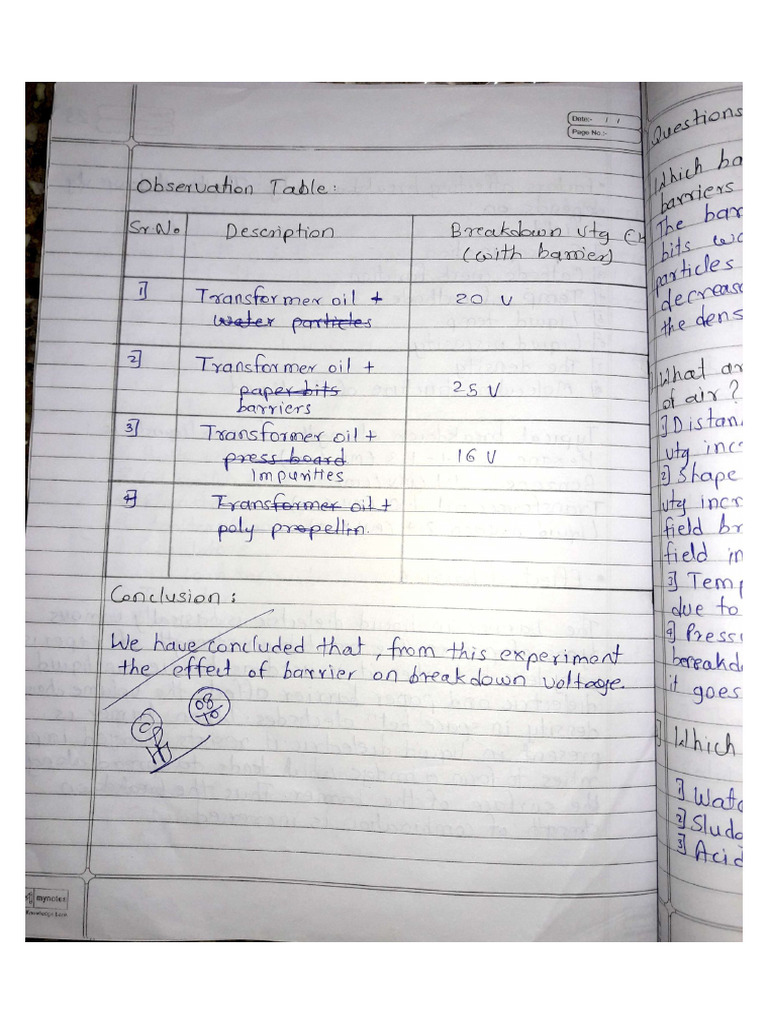 Date:- / /
Page No:-
Observation Table:
Sr.No Description Breakdown vtg
(with barrier)
1] Transformer oil + 20 V
water particles
2] Transformer oil +
paper bits 25 V
barriers
3] Transformer oil +
press board 16 V
impurities
4] Transformer oil +
poly propellin.
Conclusion:
We have concluded that, from this experiment
the effect of barrier on breakdown voltage.
08
10
mynotes
Questions
Which ba
barriers
The bar
bits wo
particles
decreas
the dens
What ar
of air?
1] Distan
vtg inc
2] Shape
vtg incr
field br
field in
3] Temp
due to
4] Press
bereakd
it goes
Which
1] Wate
2] Sludg
3] Acid